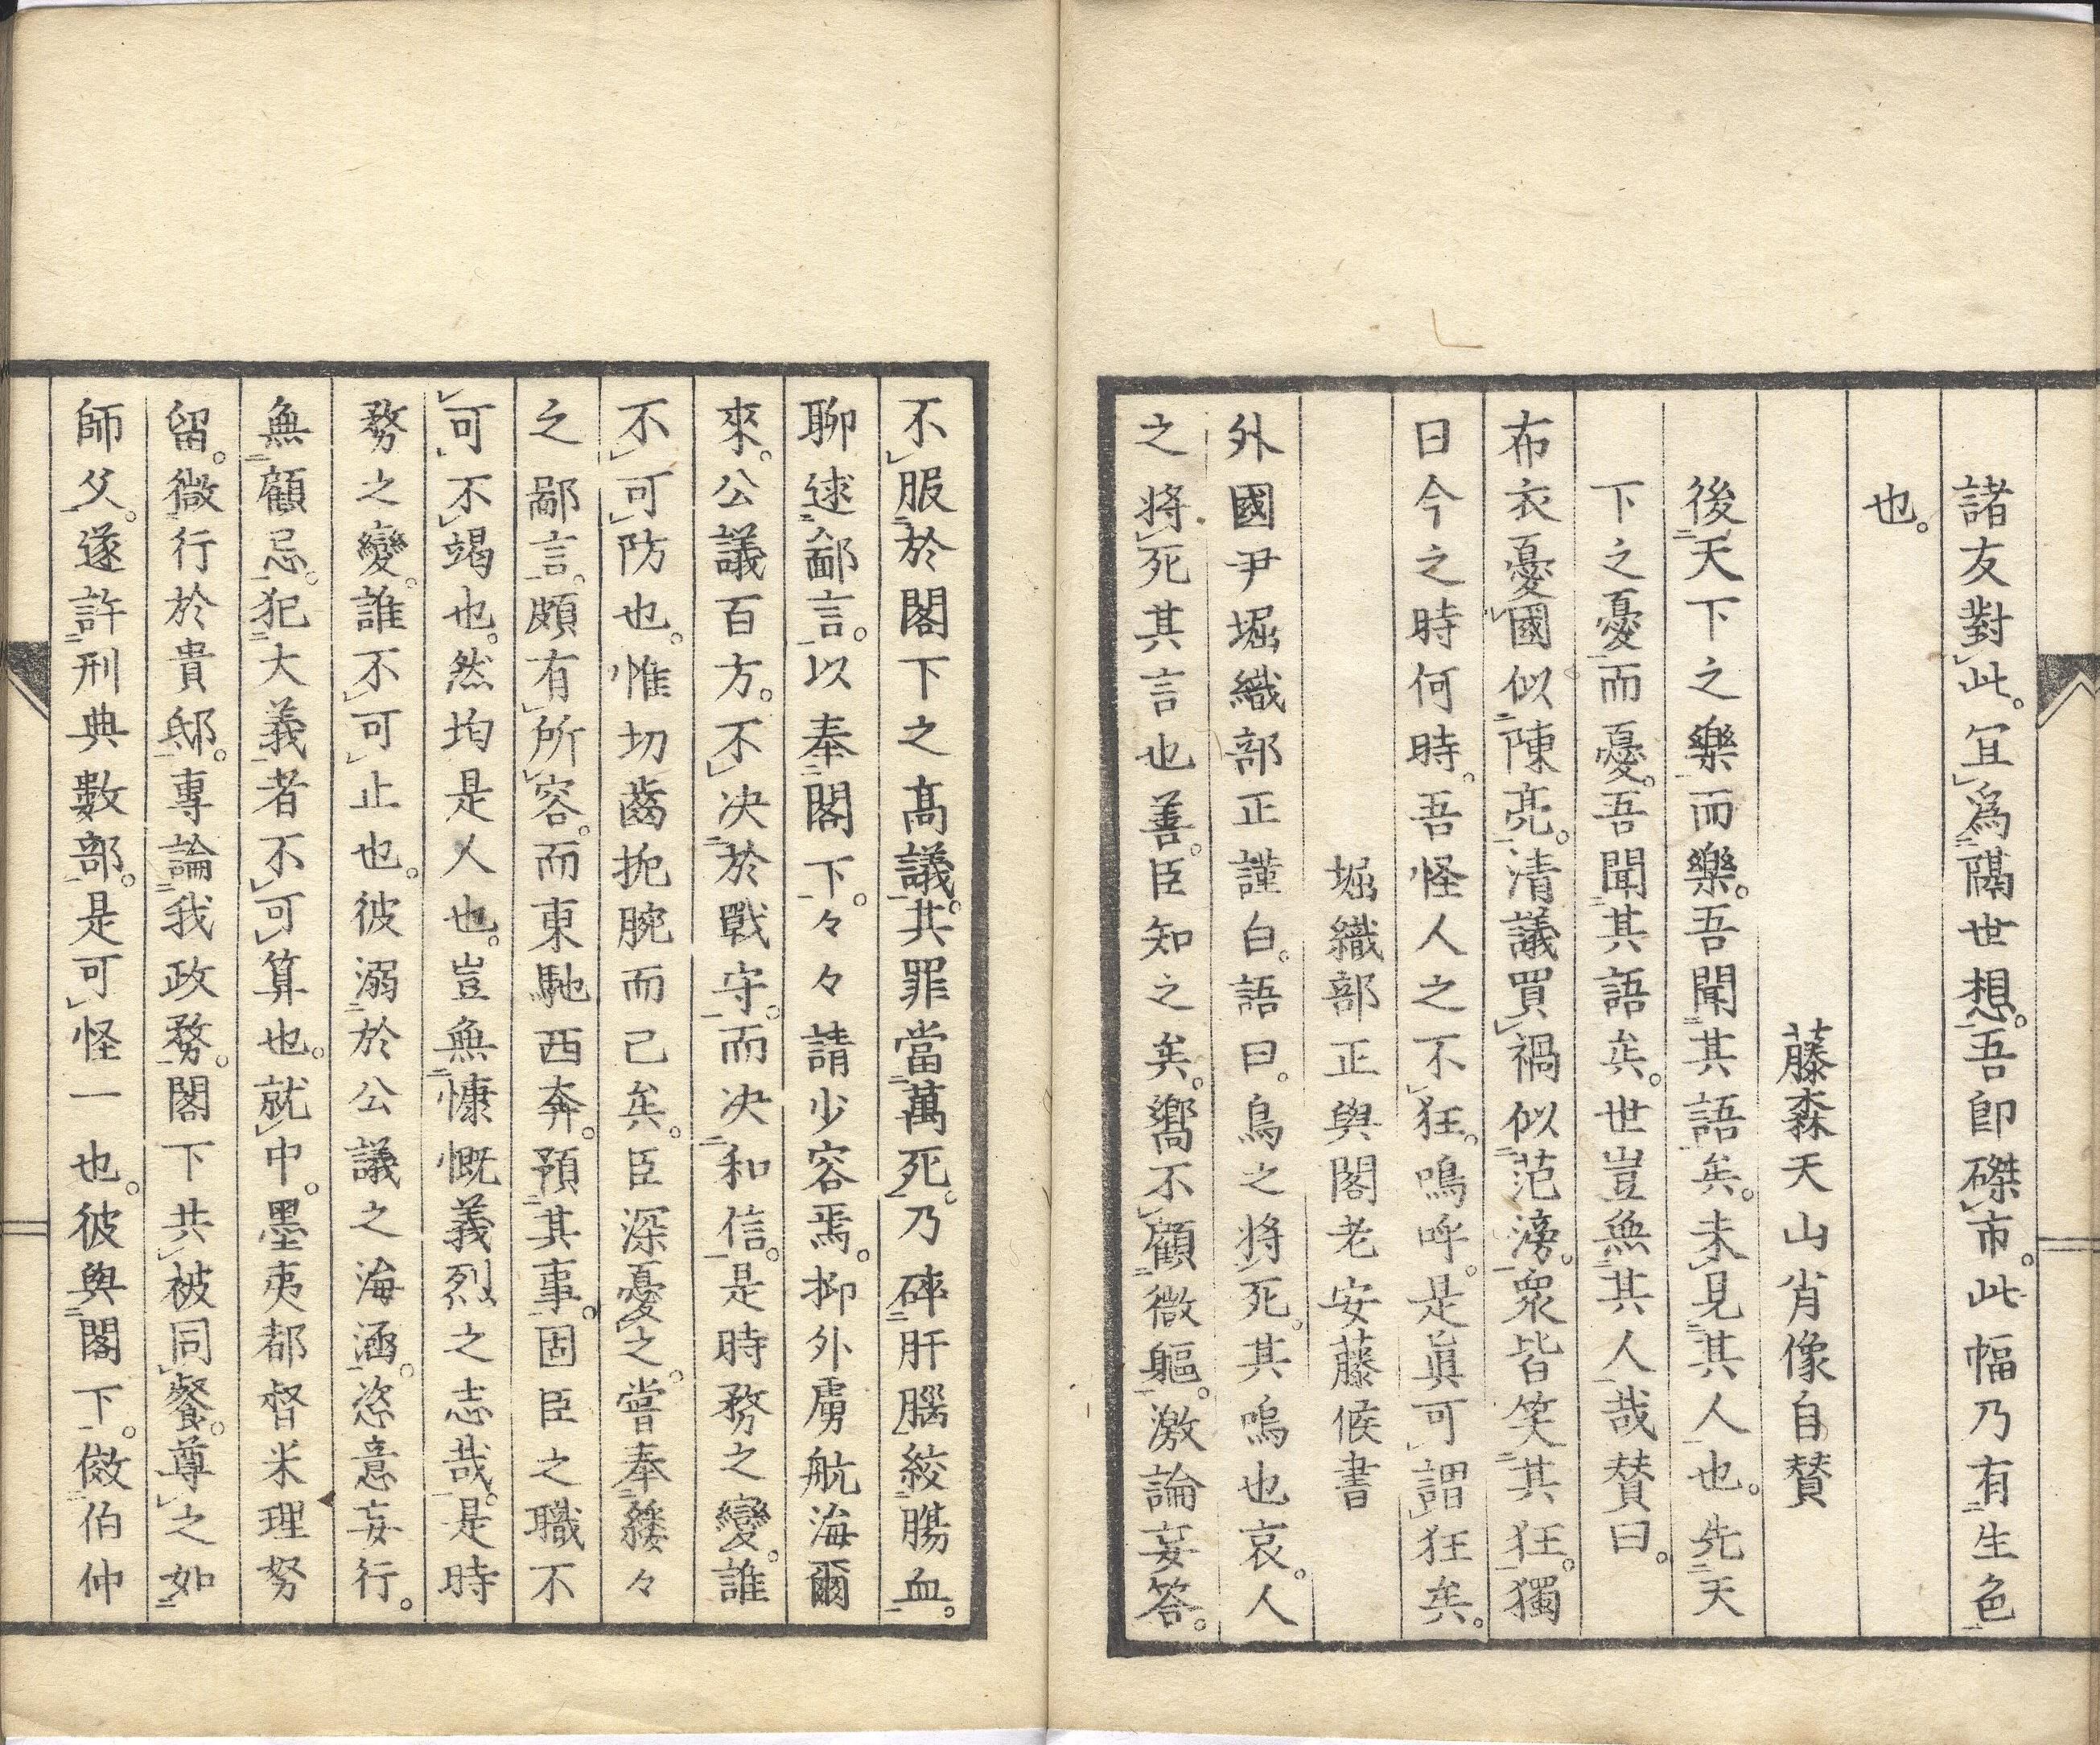 諸友對此。宜爲隔世想。吾卽磔市。此幅乃有生色
也。
藤森天山肖像自贊
後天下之樂而樂。吾聞其語矣。未見其人也。先天
下之憂而憂。吾聞其語矣。世豈無其人哉賛曰。
布衣憂國似陳亮。清議買禍似范滂。衆皆笑其狂。獨
曰今之時何時。吾怪人之不狂。嗚呼。是眞可謂狂矣。
堀織部正與閣老安藤候書
外國尹堀織部正謹白。語曰。鳥之將死。其鳴也哀。人
之將死其言也善。臣知之矣。嚮不顧微軀。激論妄答。
不服於閣下之高議。其罪當萬死。乃碎肝腦絞膓血。
聊逑鄙言。以奉閣下。々々請少容焉。抑外虜航海爾
來。公議百方。不决於戰守。而决和信。是時務之變。誰
不可防也。惟切齒扼腕而已矣。臣深憂之。嘗奉縷々
之鄙言。頗有所容。而東馳西奔。預其事。固臣之職不
可不竭也。然均是人也。豈無慷慨義烈之志哉。是時
務之變。誰不可止也。彼溺於公議之海涵。恣意妄行。
無顧忌。犯大義者不可算也。就中。墨夷都督米理努
留。微行於貴邸。專論我政務。閣下共被同餐。尊之如
師父。遂許刑典數部。是可怪一也。彼與閣下。倣伯仲